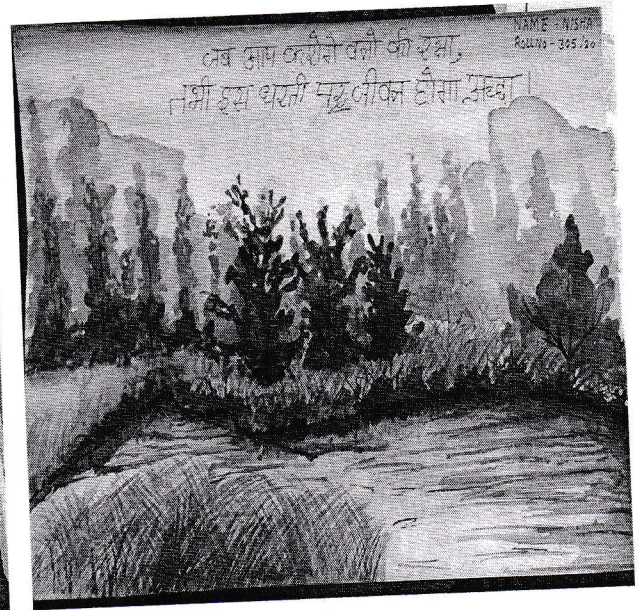 NAME - NISHA
ROLL NO - 305/20
जब आप करोगे वनो की रक्षा,
तभी इस धरती पर जीवन होगा अच्छा।